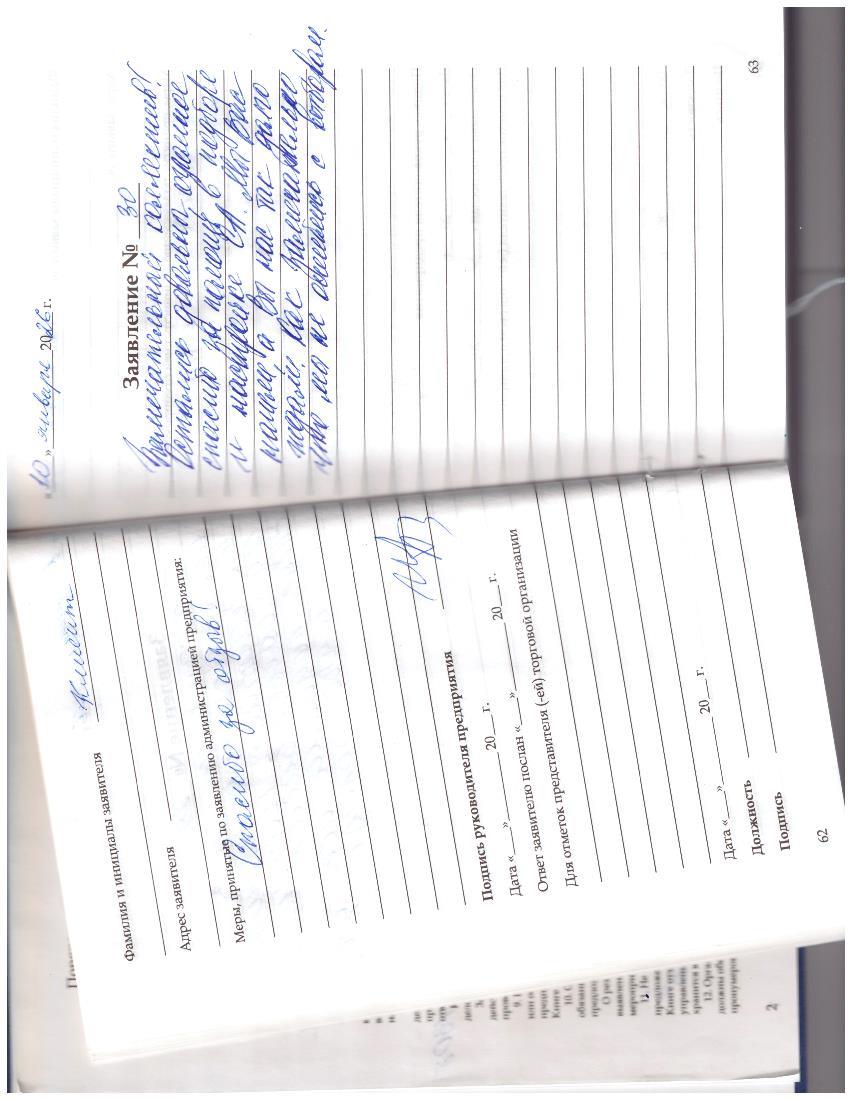 Фамилия и инициалы заявителя Клиент
Адрес заявителя
Меры, принятые по заявлению администрацией предприятия:
Спасибо за отзыв!
Подпись руководителя предприятия
Дата «___»___________20___ г.
Ответ заявителю послан «___»___________20___ г.
Для отметок представителя (-ей) торговой организации
Дата «___»___________20___ г.
Должность
Подпись
62
«10» января 2026 г.
Заявление № 30
Замечательный коллектив!
Остались довольны, огромное
спасибо за помощь в подборе
и настройке СА. Мы вас
нашли, а вы нас так
что мы не с
63
2